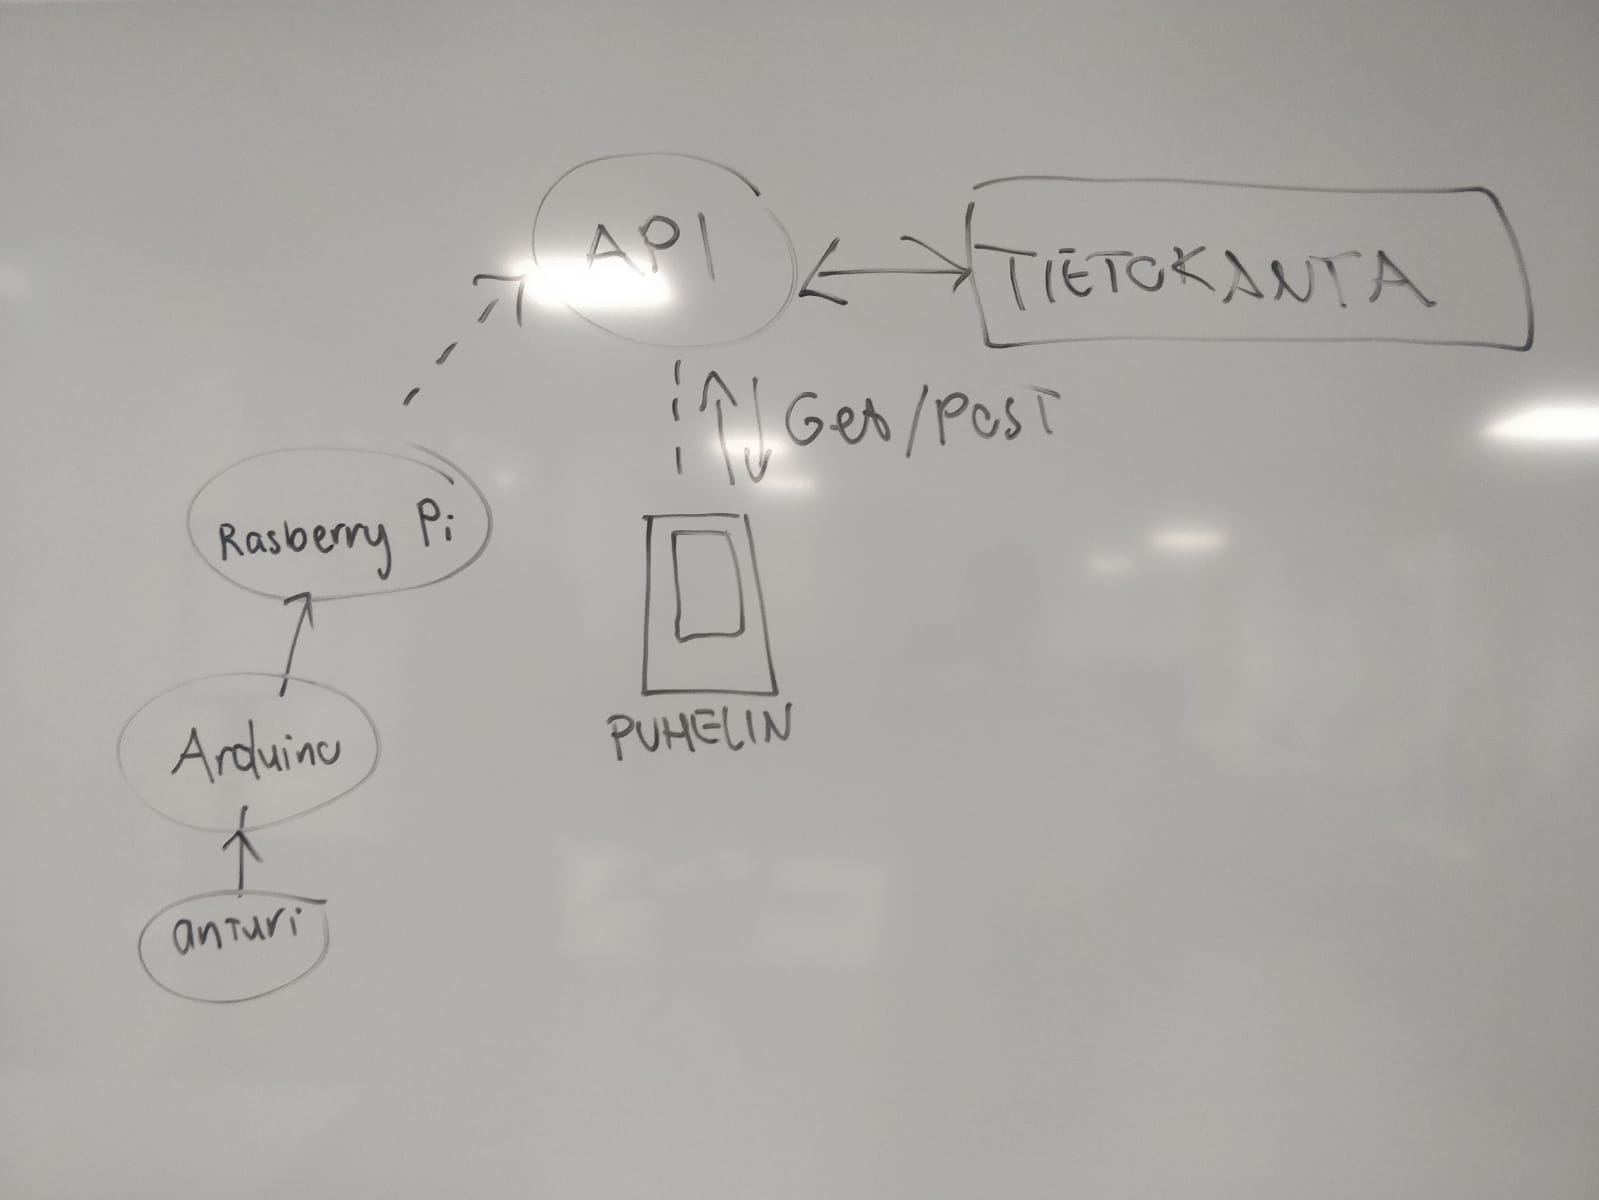 API
TIETOKANTA
Get/POST
Rasberry Pi
PUHELIN
Arduino
anturi